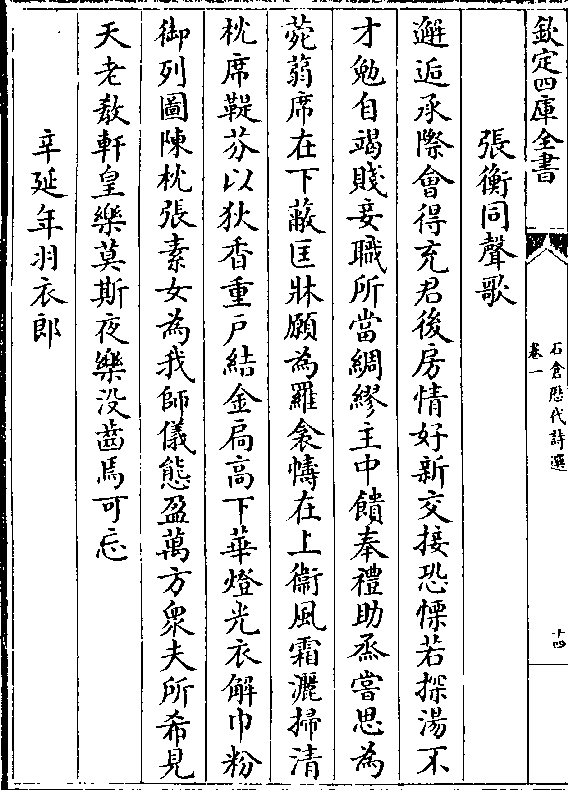 欽定四庫全書
石倉歷代詩選
卷一
十四
張衡同聲歌
邂逅承際會得充君後房情好新交接恐慄若探湯不
才勉自竭賤妾職所當綢繆主中饋奉禮助烝嘗思為
莞蒻席在下蔽匡牀願為羅衾幬在上衞風霜灑掃清
枕席鞮芬以狄香重戶結金扃高下華燈光衣解巾粉
御列圖陳枕張素女為我師儀態盈萬方衆夫所希見
天老教軒皇樂莫斯夜樂没齒焉可忘
辛延年羽衣郎